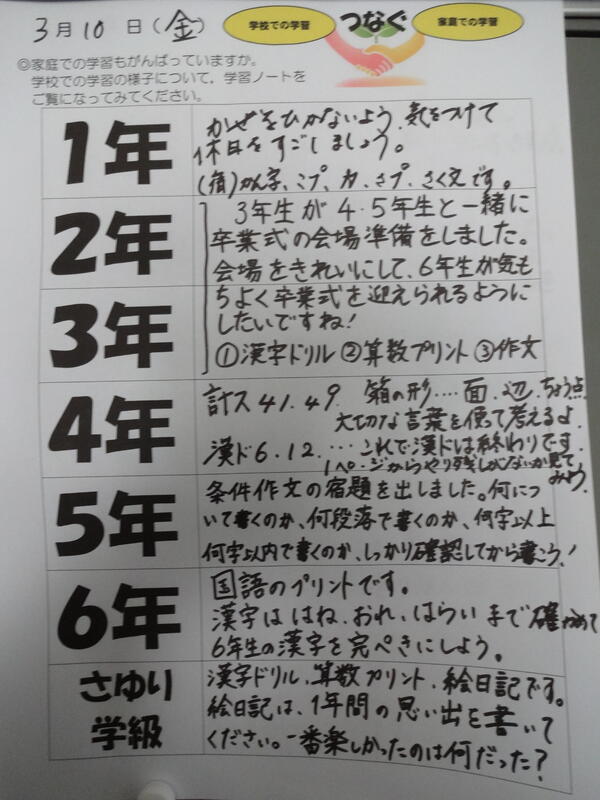 3月10日(金)
学校での学習
つなぐ
家庭での学習
◎家庭での学習もがんばっていますか。
学校での学習の様子について、学習ノートを
ご覧になってみてください。
1年
かぜをひかないよう、気をつけて
休日をすごしましょう。
(宿)かん字、こプ、カ、さプ、さく文です。
2年
3年
3年生が4・5年生と一緒に
卒業式の会場準備をしました。
会場をきれいにして、6年生が気も
ちよく卒業式を迎えられるように
したいですね!
①漢字ドリル ②算数プリント ③作文
4年
計ス41.49. 箱の形‥‥面、辺、ちょう点
大切な言葉を使って考えるよ.
漢ド6.12.…これで漢ドは終わりです.
1ページからやり残しがないか見て
みよう.
5年
条件作文の宿題を出しました。何につ
いて書くのか、何段落で書くのか、何字以上
何字以内で書くのか、しっかり確認してから書こう!
6年
国語のプリントです。
漢字ははね、おれ、はらいまで確かめて
6年生の漢字を完ぺきにしよう。
さゆり
学級
漢字ドリル、算数プリント、絵日記です。
絵日記は、1年間の思い出を書いて
ください。一番楽しかったのは何だった?